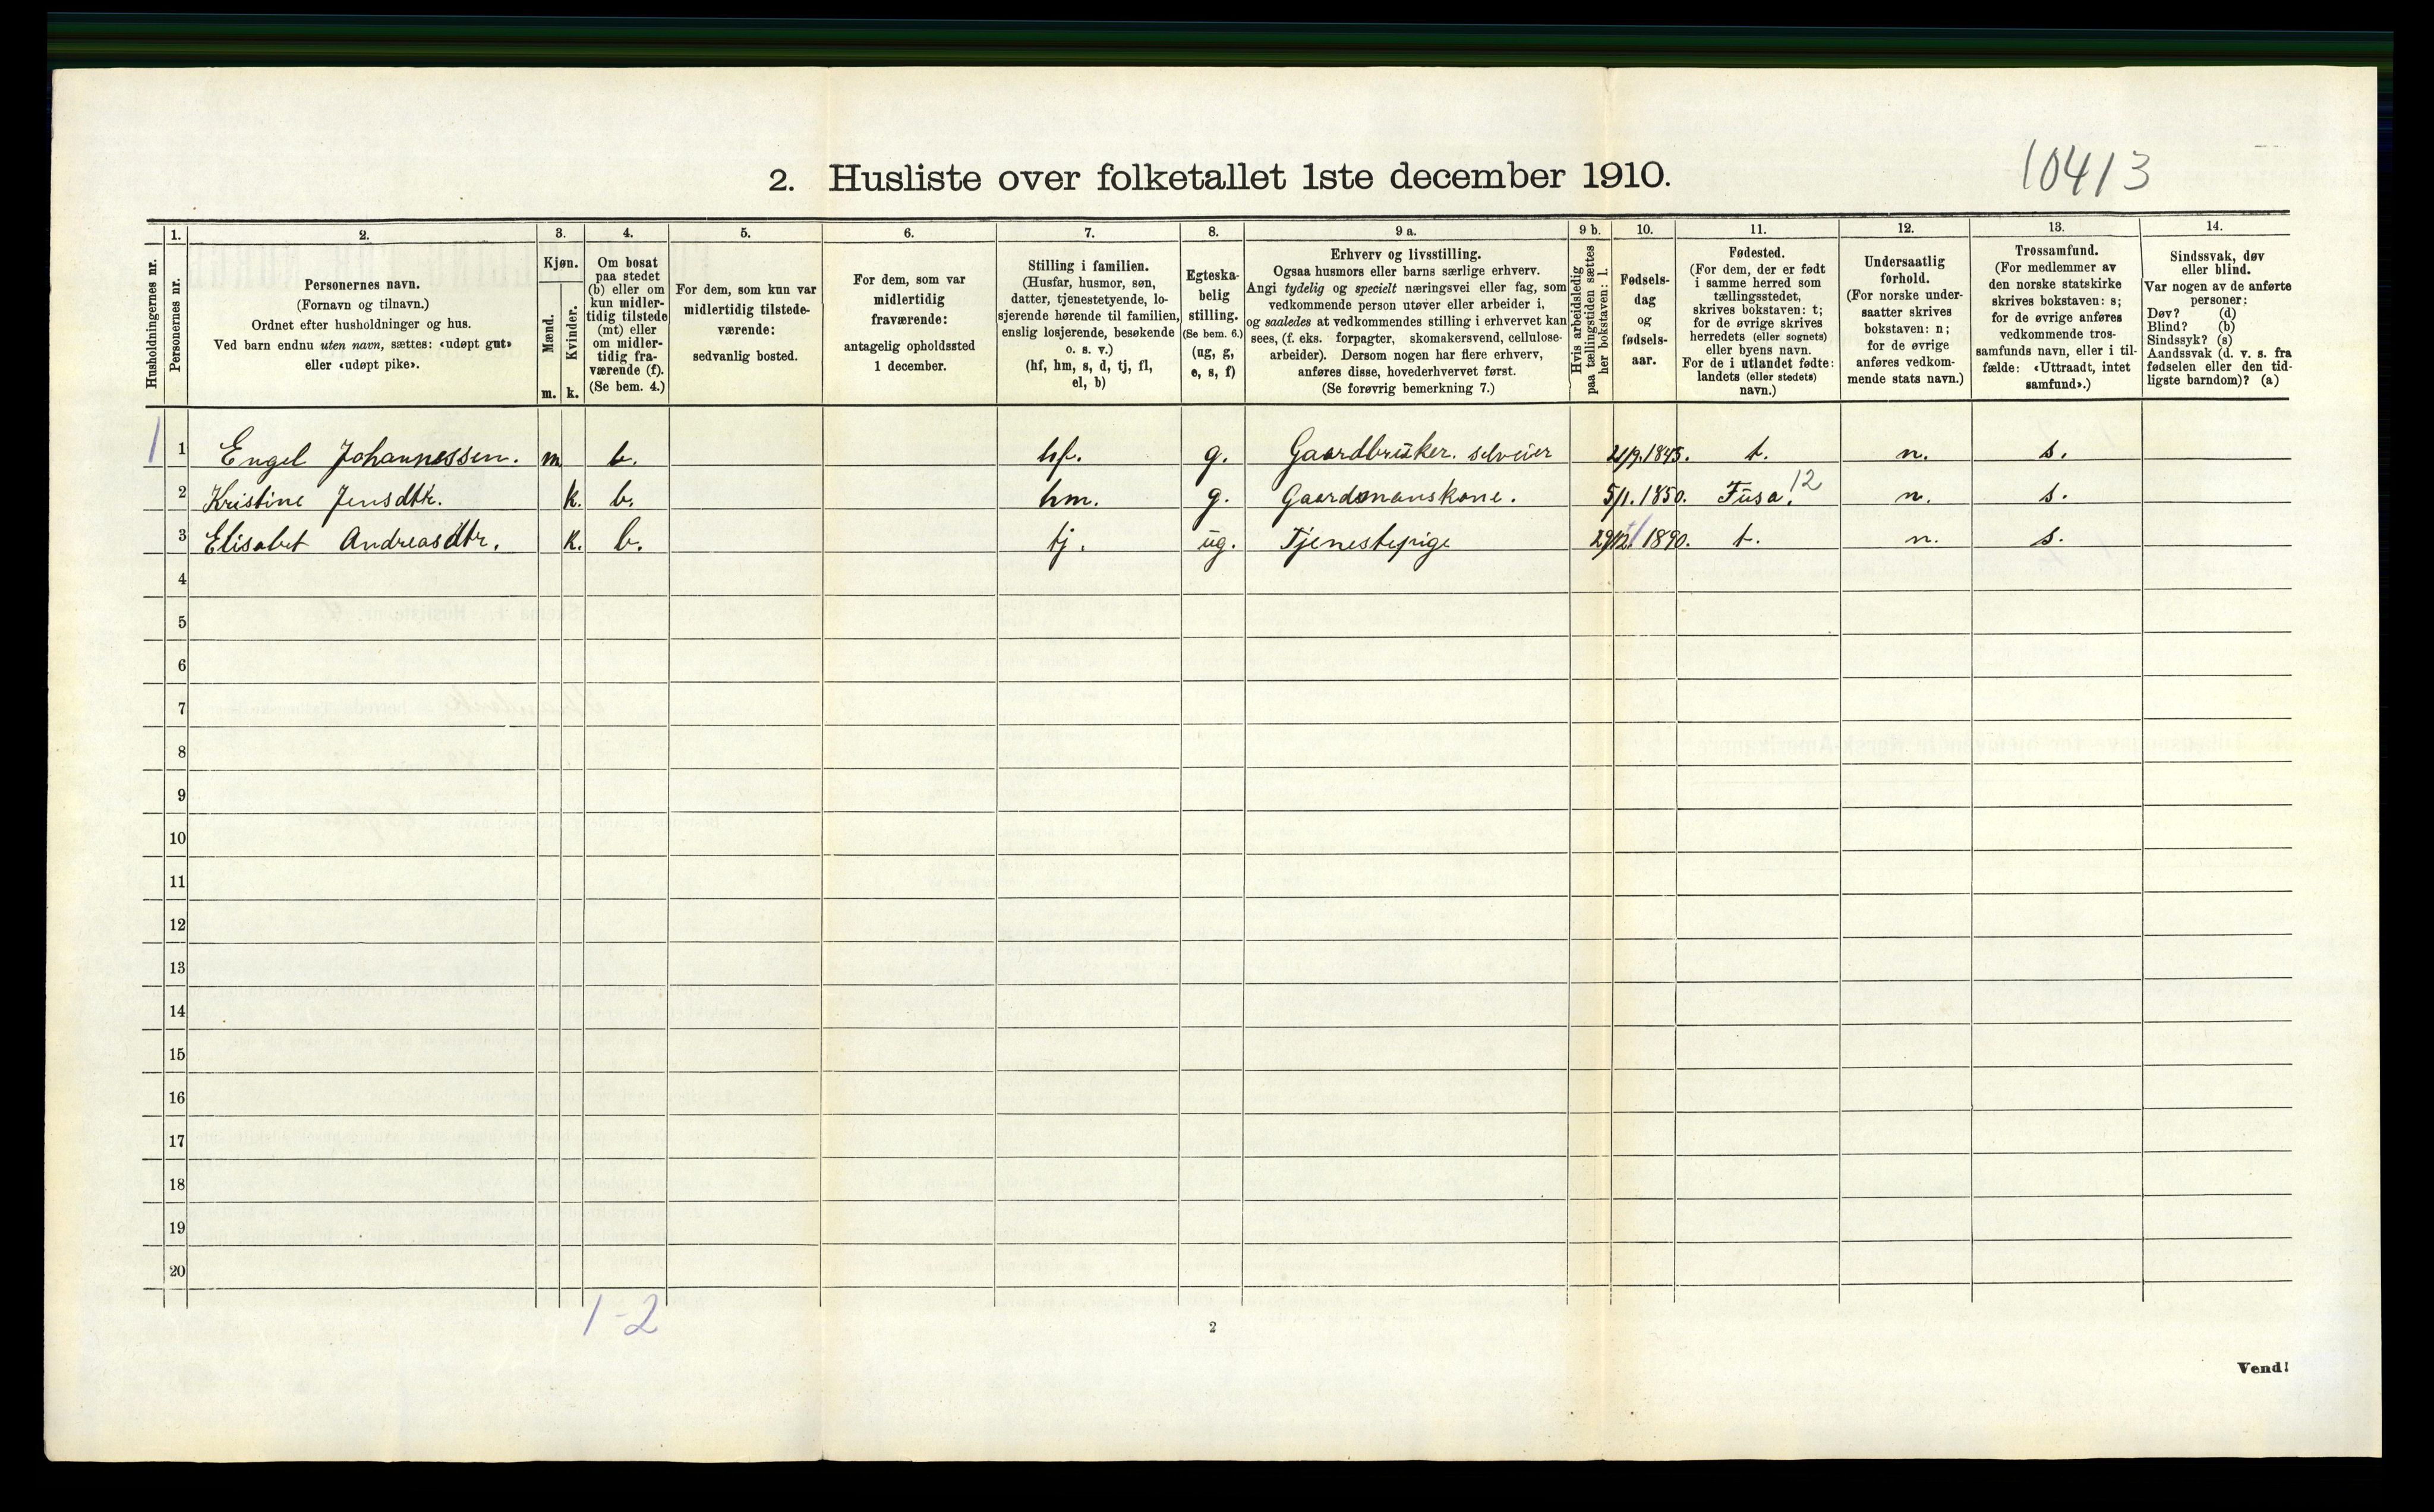 10413
2. Husliste over folketallet 1ste december 1910.
Husholdningernes nr.
1. Personernes nr.
2. Personernes navn.
(Fornavn og tilnavn.)
Ordnet efter husholdninger og hus.
Ved barn endnu uten navn, sættes: «udøpt gut»
eller «udøpt pike».
3. Kjøn.
Mænd. m.
Kvinder. k.
4. Om bosat
paa stedet
(b) eller om
kun midler-
tidig tilstede
(mt) eller
om midler-
tidig fra-
værende (f).
(Se bem. 4.)
5. For dem, som kun var
midlertidig tilstede-
værende:
sedvanlig bosted.
6. For dem, som var
midlertidig
fraværende:
antagelig opholdssted
1 december.
7. Stilling i familien.
(Husfar, husmor, søn,
datter, tjenestetyende, lo-
sjerende hørende til familien,
enslig losjerende, besøkende
o. s. v.)
(hf, hm, s, d, tj, fl,
el, b)
8. Egteska-
belig
stilling.
(Se bem. 6.)
(ug, g,
e, s, f)
9 a. Erhverv og livsstilling.
Ogsaa husmors eller barns særlige erhverv.
Angi tydelig og specielt næringsvei eller fag, som
vedkommende person utøver eller arbeider i,
og saaledes at vedkommendes stilling i erhvervet kan
sees, (f. eks. forpagter, skomakersvend, cellulose-
arbeider). Dersom nogen har flere erhverv,
anføres disse, hovederhvervet først.
(Se forøvrig bemerkning 7.)
9 b. Hvis arbeidsledig
paa tællingstiden sættes
her bokstaven: l.
10. Fødsels-
dag
og
fødsels-
aar.
11. Fødested.
(For dem, der er født
i samme herred som
tællingsstedet,
skrives bokstaven: t;
for de øvrige skrives
herredets (eller sognets)
eller byens navn.
For de i utlandet fødte:
landets (eller stedets)
navn.)
12. Undersaatlig
forhold.
(For norske under-
saatter skrives
bokstaven: n;
for de øvrige
anføres vedkom-
mende stats navn.)
13. Trossamfund.
(For medlemmer av
den norske statskirke
skrives bokstaven: s;
for de øvrige anføres
vedkommende tros-
samfunds navn, eller i til-
fælde: «Uttraadt, intet
samfund».)
14. Sindssvak, døv
eller blind.
Var nogen av de anførte
personer:
Døv? (d)
Blind? (b)
Sindssyk? (s)
Aandssvak (d. v. s. fra
fødselen eller den tid-
ligste barndom)? (a)
1 1 Engel Johannessen. m b. hf. g. Gaardbruker. selveier 1845. t. n. s.
2 Kristine Jensdtr. k. b. hm. g. Gaardmanskone. 5/1. 1850. Fusa. 12 n. s.
3 Elisabet Andreasdtr. k. b. tj. ug. Tjenestepige 29/12. 1890. t. n. s.
4
5
6
7
8
9
10
11
12
13
14
15
16
17
18
19
20
1-2
2
Vend!